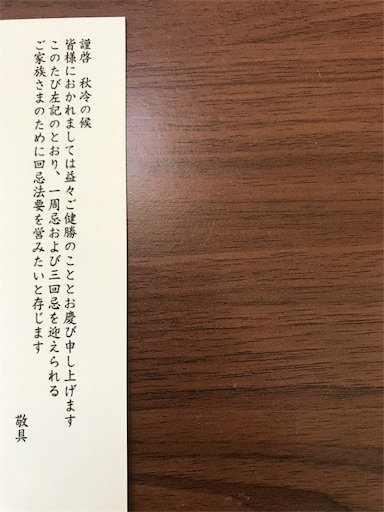 謹啓 秋冷の候
皆様におかれましては益々ご健勝のこととお慶び申し上げます
このたび左記のとおり、一周忌および三回忌を迎えられる
ご家族さまのために回忌法要を営みたいと存じます
敬具